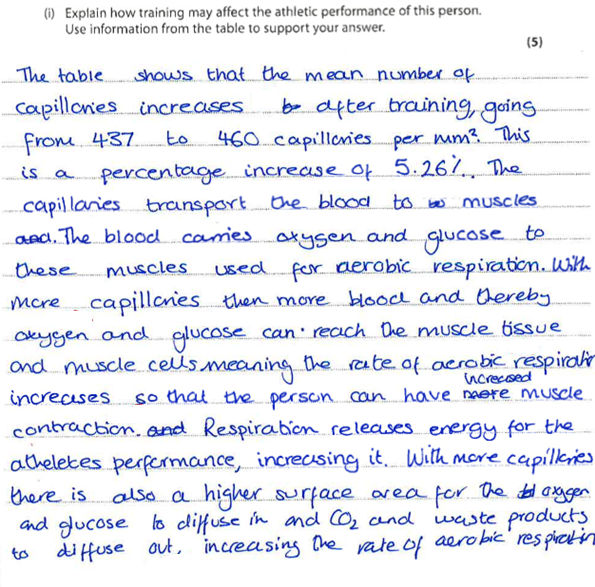 (i) Explain how training may affect the athletic performance of this person.
Use information from the table to support your answer.
(5)
The table shows that the mean number of
capillaries increases after training, going
from 437 to 460 capillaries per mm². This
is a percentage increase of 5.26%. The
capillaries transport the blood to muscles
and. The blood carries oxygen and glucose to
these muscles used for aerobic respiration. With
more capillaries then more blood and thereby
oxygen and glucose can reach the muscle tissue
and muscle cells meaning the rate of aerobic respiratio
increases so that the person can have increased muscle
contraction. and Respiration releases energy for the
atheletes performance, increasing it. With more capillaries
there is also a higher surface area for the oxygen
and glucose to diffuse in and CO₂ and waste products
to diffuse out, increasing the rate of aerobic respiratin